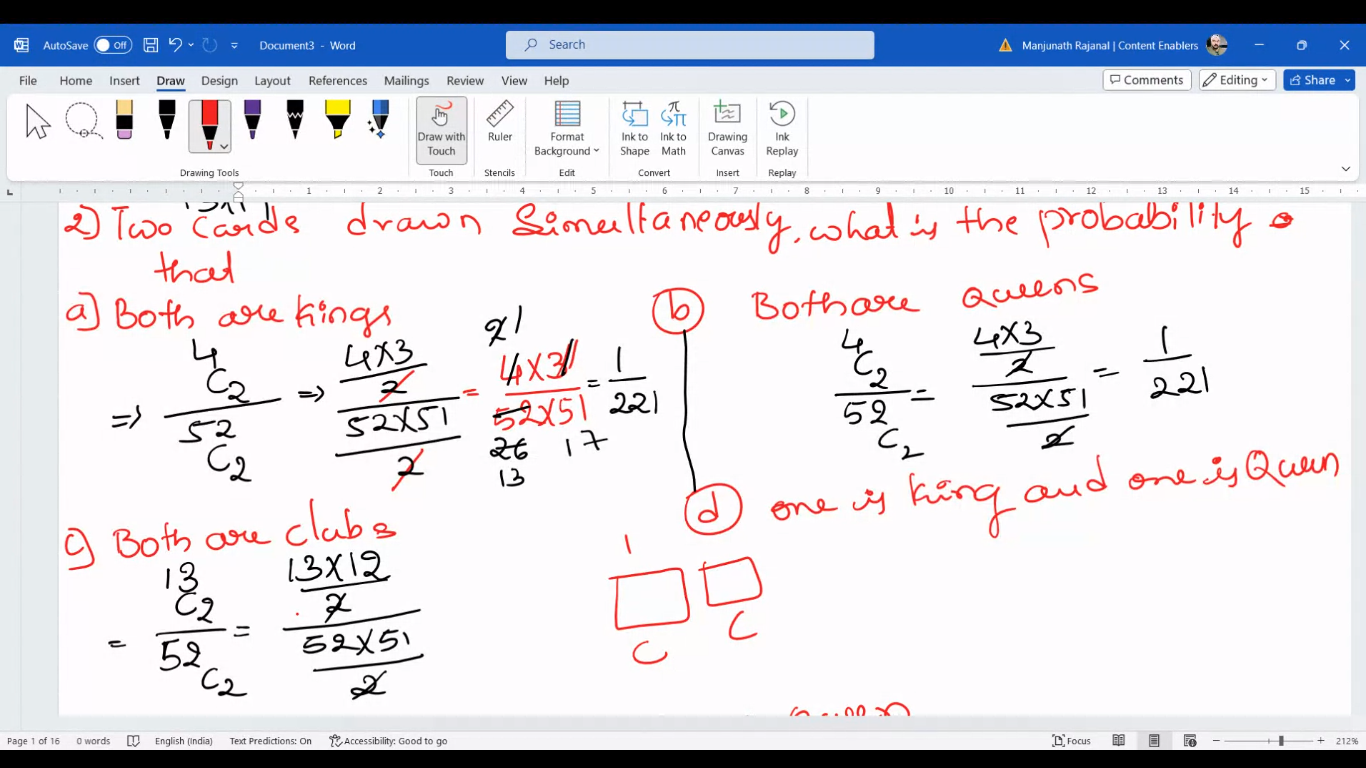 AutoSave Off Document3 - Word Search Manjunath Rajanal | Content Enablers
File Home Insert Draw Design Layout References Mailings Review View Help Comments Editing Share
Draw with Touch Ruler Format Background Ink to Shape Ink to Math Drawing Canvas Ink Replay
Drawing Tools Touch Stencils Edit Convert Insert Replay
1 2 3 4 5 6 7 8 9 10 11 12 13 14 15
2) Two cards drawn Simultaneously, what is the probability
that
a) Both are kings
⇒ 4C2 / 52C2 ⇒ (4×3/2) / (52×51/2) = 4×3 / 52×51 = 1/221
2 1
26 17
13
b Both are Queens
4C2 / 52C2 = (4×3/2) / (52×51/2) = 1/221
c) Both are clubs
= 13C2 / 52C2 = (13×12/2) / (52×51/2)
d one is king and one is Queen
1
C C
Page 1 of 16 0 words English (India) Text Predictions: On Accessibility: Good to go Focus 212%